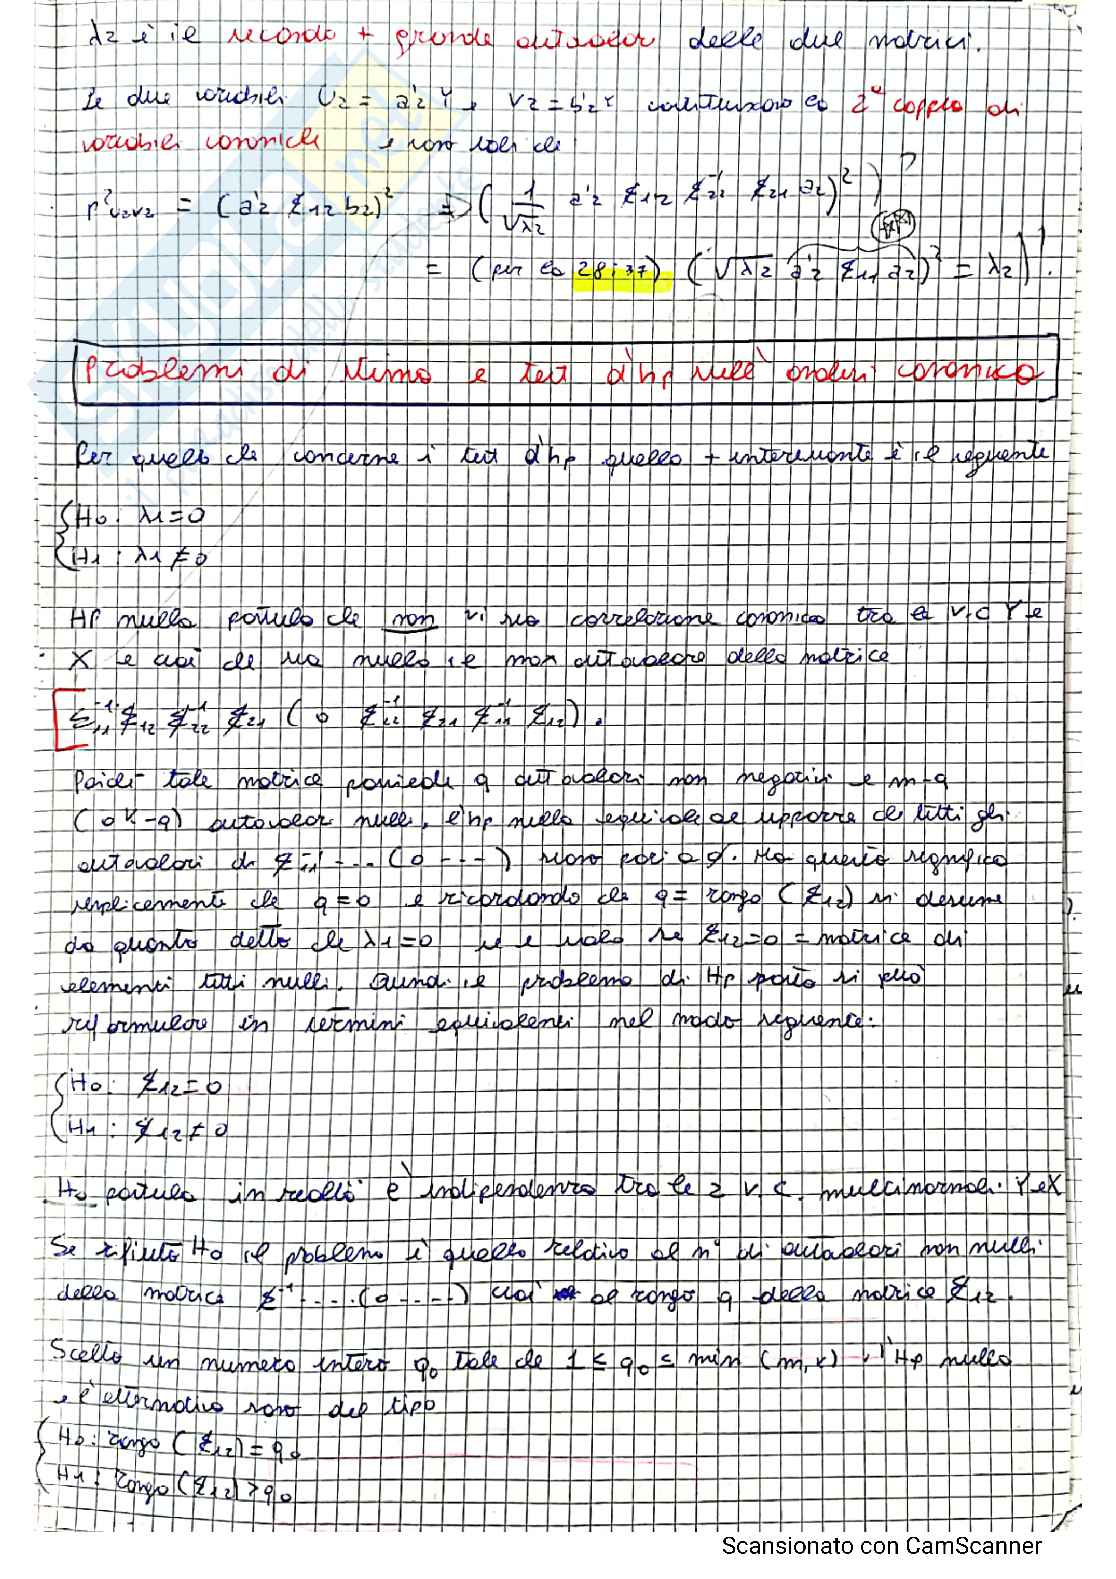 λ2 è il secondo + grande autovalor delle due matrici.
Le due variabili U2 = a'2 Y e V2 = b'2 X costituiscono la 2ª coppia di
variabili canoniche e sono tali che
ρ²U2V2 = (a'2 Σ12 b2)² => ( 1/√λ2 a'2 Σ12 Σ22⁻¹ Σ21 a2)² ) ?
= (per la 28:37) (√λ2 a'2 Σ11 a2)² = λ2 ) .
Problemi di stima e test d'hp nell'analisi canonica
Per quello che concerne i test d'hp quello + interessante è il seguente
{ H0: λ1=0
{ H1: λ1≠0
HP nulla postula che non vi sia correlazione canonica tra le v.c Y e
X e cioè che sia nullo il max autovalore della matrice
[ Σ11⁻¹ Σ12 Σ22⁻¹ Σ21 ( o Σ22⁻¹ Σ21 Σ11⁻¹ Σ12).
Poichè tale matrice possiede q autovalori non negativi e m-q
(o k-q) autovalor nulli, l'hp nulla equivale ad supporre che tutti gli
autovalori di Σ11⁻¹ ... (o ---) siano pari a 0. Ma questo significa
semplicemente che q=0 e ricordando che q= rango (Σ12) si desume
da quanto detto che λ1=0 se e solo se Σ12=0 = matrice di
elementi tutti nulli. Quindi il problema di Hp posto si può
riformulare in termini equivalenti nel modo seguente:
{ H0: Σ12=0
{ H1: Σ12≠0
H0 postula in realtà l'indipendenza tra le 2 v.c. multinormali Y e X
Se rifiuto H0 il problema è quello relativo al n° di autovalori non nulli
della matrice Σ⁻¹ ....(o ----) cioè al rango q della matrice Σ12.
Scelto un numero intero q0 tale che 1 ≤ q0 ≤ min (m,k) , l'Hp nulla
e l'alternativa sono del tipo
{ H0: rango (Σ12) = q0
{ H1: rango (Σ12) > q0
Scansionato con CamScanner